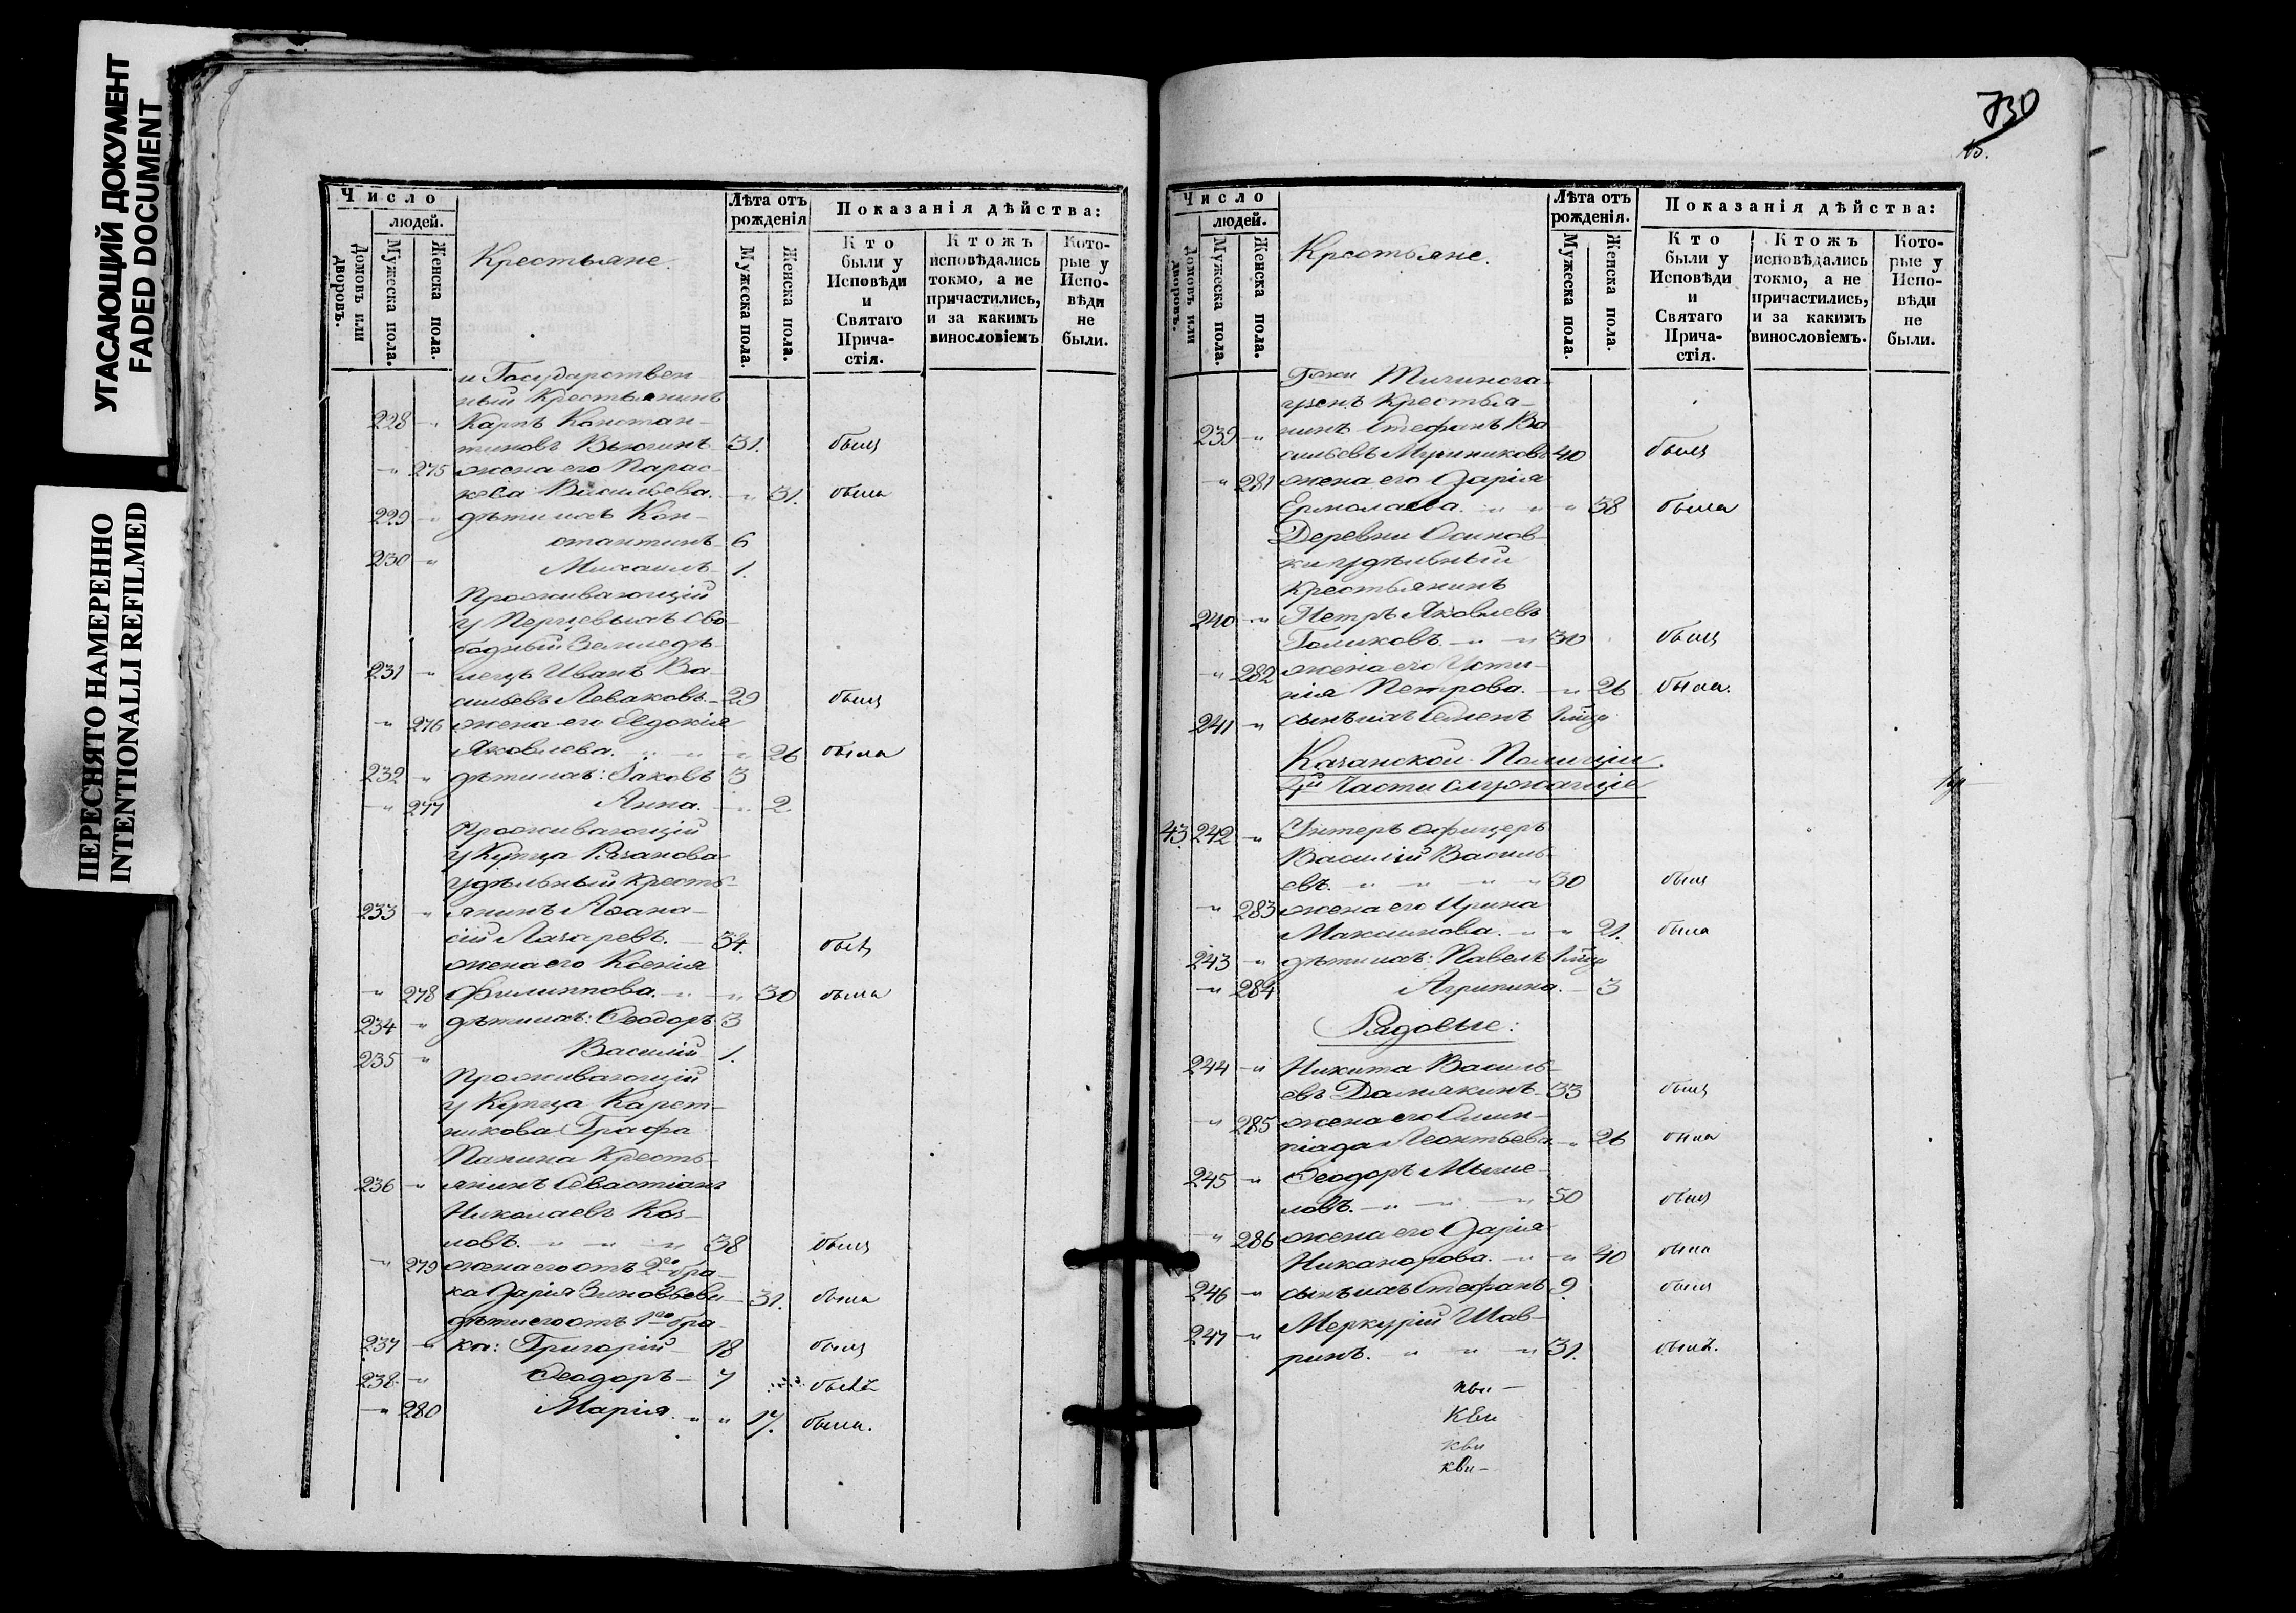 УГАСАЮЩИЙ ДОКУМЕНТ
FADED DOCUMENT
ПЕРЕСНЯТО НАМЕРЕННО
INTENTIONALLI REFILMED
Число
людей.
Домовъ или дворовъ.
Мужеска пола.
Женска пола.
Крестьяне.
Лѣта отъ рожденія
Мужеска пола.
Женска пола.
Показанія дѣйства:
Кто были у Исповѣди и Святаго Прича-стія.
Ктожъ исповѣдались токмо, а не причастились, и за какимъ винословіемъ
Кото-рые у Испо-вѣди не были.
и Государствен-
ный Крестьянинъ
228 " Карпъ Констан-
тиновъ Вьюгинъ 31. былъ
" 275 жена его Парас-
кева Васильева. " 31. была
229 " дѣти ихъ Кон-
стантинъ 6
230 " Михаилъ 1.
Проживающій
у Перцевыхъ Сво-
бодный Земледѣ-
231 " лецъ Иванъ Ва-
сильевъ Леваковъ 29 былъ
" 276 жена его Евдокія
Яковлева. " " " 26 была
232 " дѣти ихъ: Іаковъ 3
" 277 Анна. " 2
Проживающій
у Купца Рязанова
удѣльный кресть-
233 " янинъ Аѳана-
сій Лазаревъ. 34. былъ
жена его Ксенія
" 278 Филиппова. " " 30 была
234 " дѣти ихъ: Ѳеодоръ 3
235 " Василій 1.
Проживающій
у Купца Карет-
никова Графа
Панина Кресть-
236 " янинъ Севастіанъ
Николаевъ Коз-
ловъ. " " " 38 былъ
" 279 жена его отъ 2го бра-
ка Дарія Зиновьева 31. была
дѣти его отъ 1го бра-
237 " ка: Григорій 18 былъ
238 " Ѳеодоръ 7 былъ
" 280 Марія. " " 17. была.
730
Число
людей.
Домовъ или дворовъ.
Мужеска пола.
Женска пола.
Крестьяне.
Лѣта отъ рожденія.
Мужеска пола.
Женска пола.
Показанія дѣйства:
Кто были у Исповѣди и Святаго Прича-стія.
Ктожъ исповѣдались токмо, а не причастились, и за какимъ винословіемъ.
Кото-рые у Испо-вѣди не были.
Гжи
крестья-
239 " нинъ Стефанъ Ва-
сильевъ 40 былъ
" 281 жена его Дарія
Ермолаева. " " " 38 была
Деревни Осинов-
ки удѣльный
крестьянинъ
240 " Петръ Яковлевъ
Голиковъ. " " 30 былъ
" 282 жена его Усти-
нія Петрова. " 26 была.
241 " сынъ ихъ Семенъ
Казанской Полиціи
4й Части служащіе
43 242 " Унтеръ офицеръ
Василій Василь-
евъ. " " " " 30 былъ
" 283 жена его Ирина
Максимова. " " 21. была
243 " дѣти ихъ: Павелъ
" 284 Агрипина. 3
Рядовые:
244 " Никита Василь-
евъ 33 былъ
" 285 жена его Олим-
піада Леонтьева " 26 была
245 " Ѳеодоръ Мыше-
ловъ. " " " 50 былъ
" 286 жена его Дарія
Никанорова. " " 40 была
246 " сынъ ихъ Стефанъ 9. былъ
247 " Меркурій Шав-
ринъ. " " " 31. былъ.